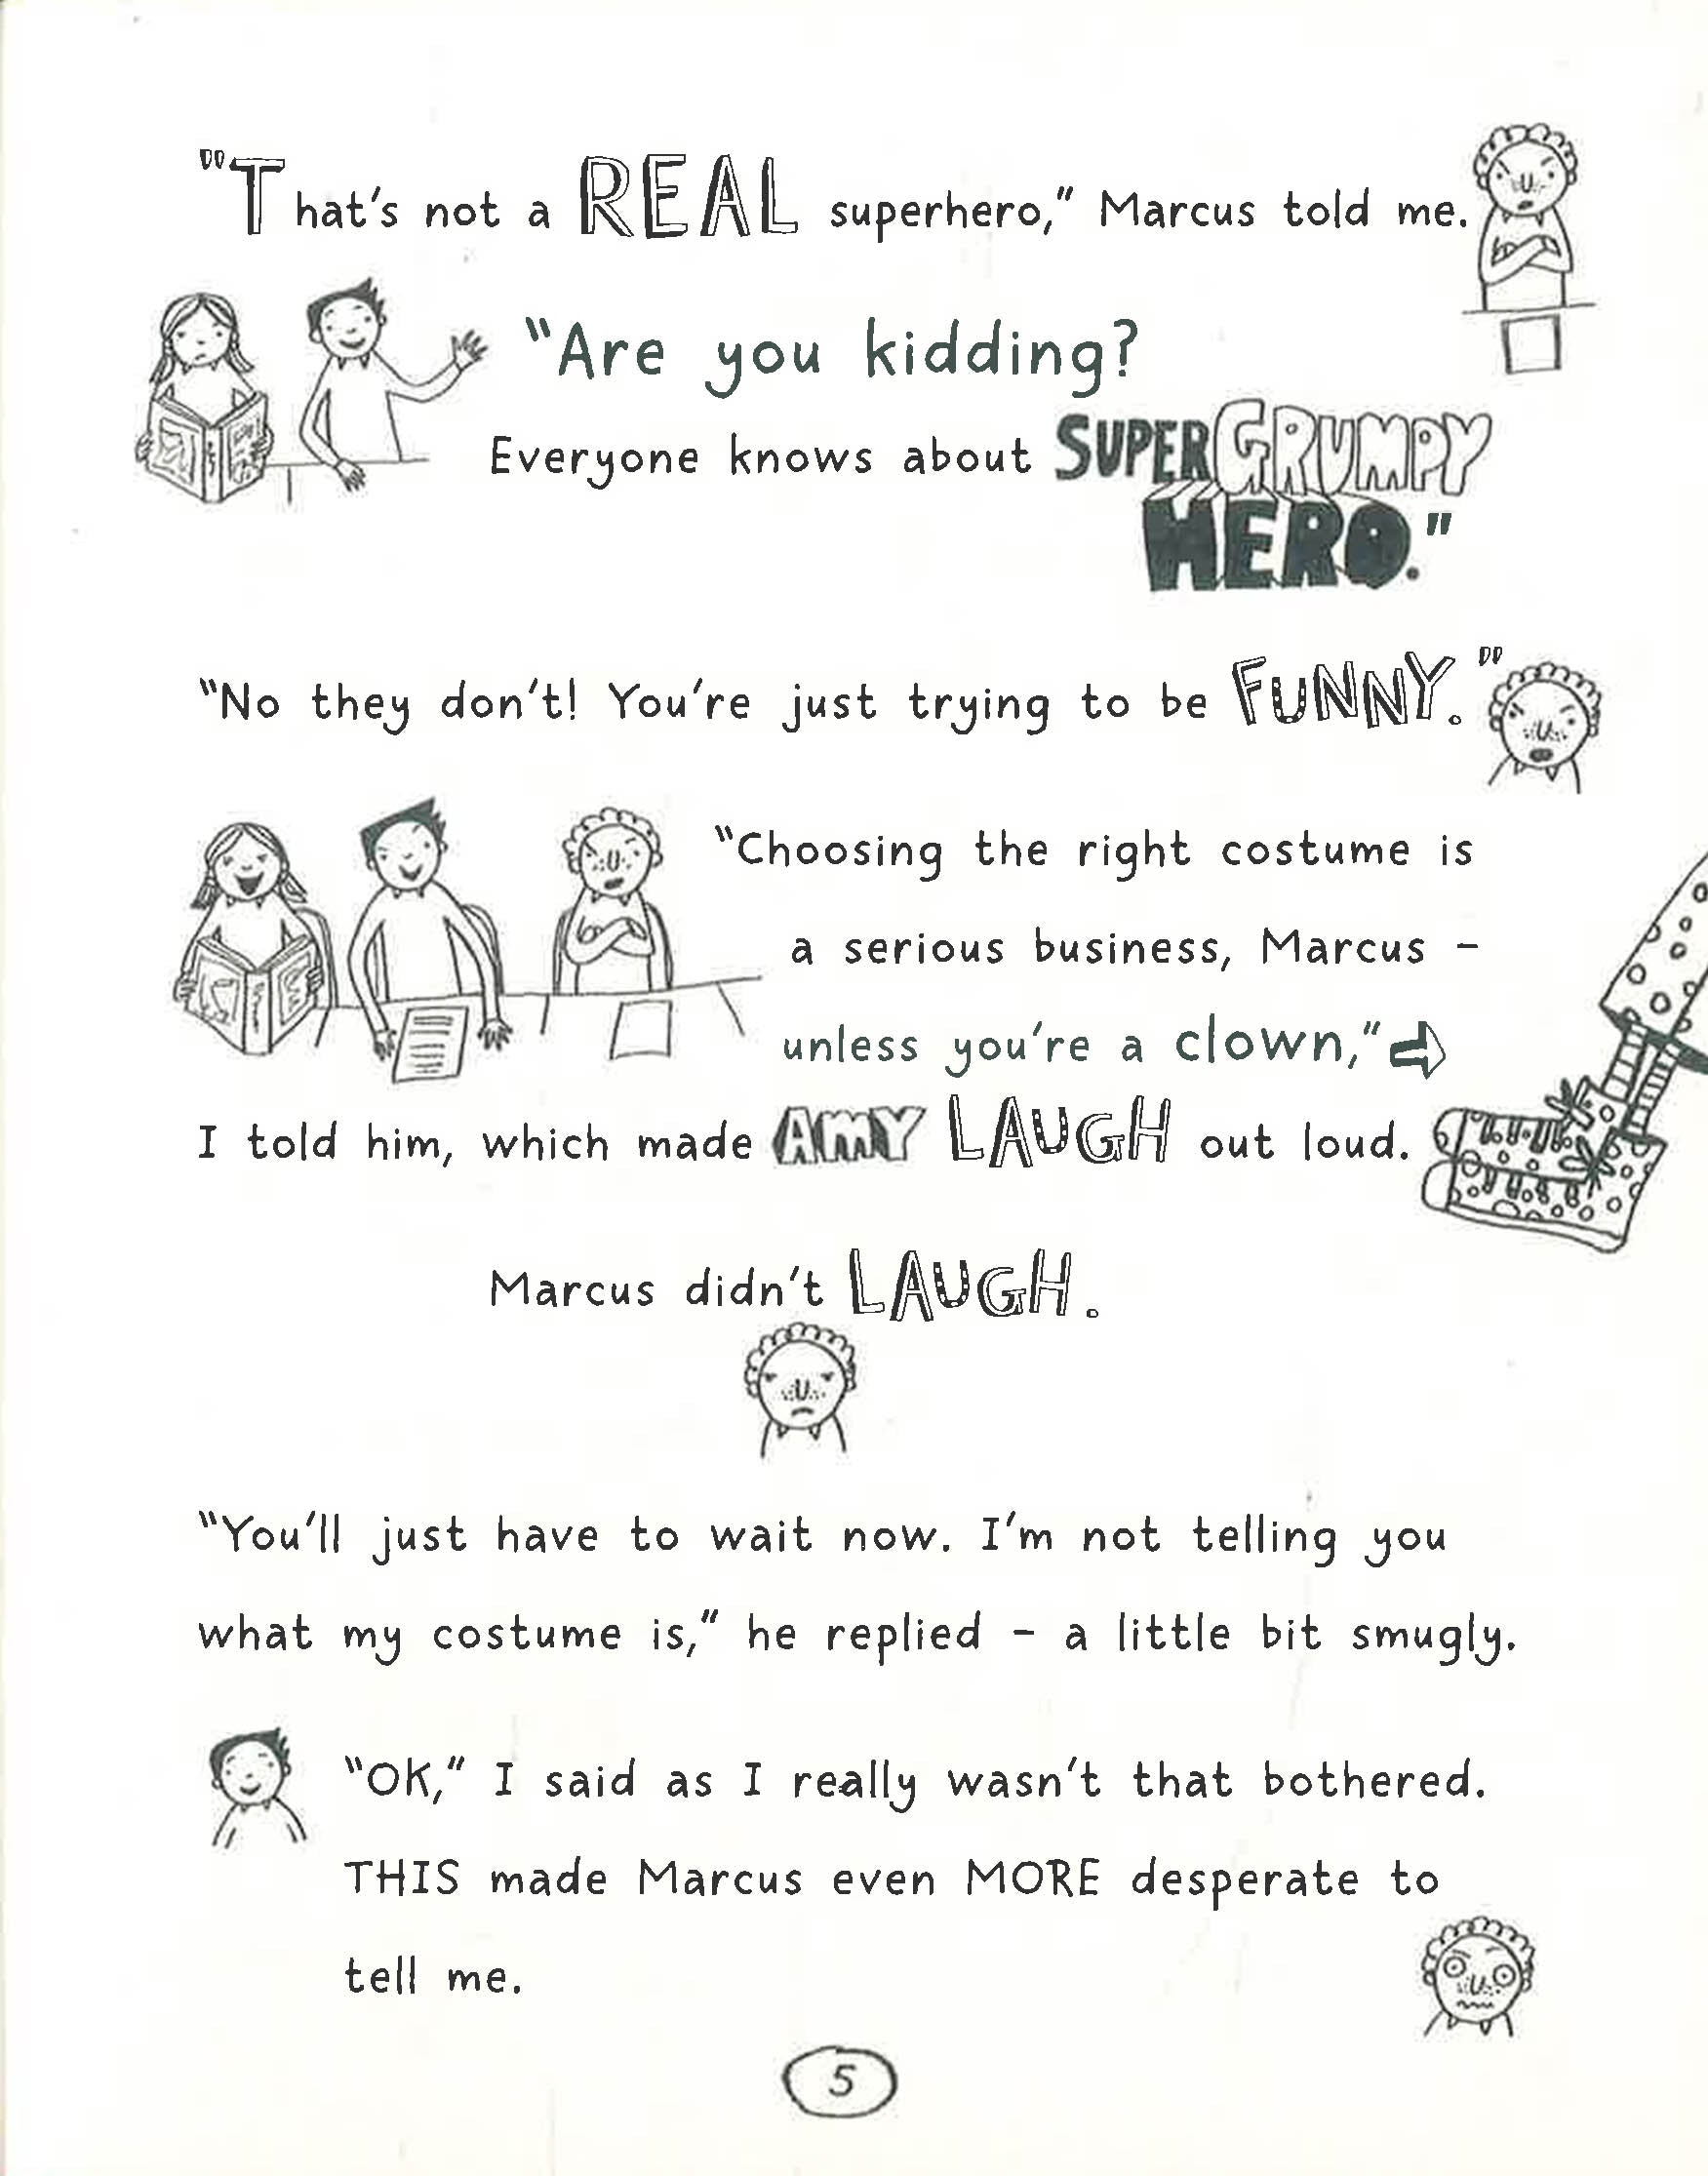 "That's not a REAL superhero," Marcus told me.
"Are you kidding?
Everyone knows about SUPER GRUMPY
HERO."
"No they don't! You're just trying to be FUNNY."
"Choosing the right costume is
a serious business, Marcus –
unless you're a clown,"
I told him, which made AMY LAUGH out loud.
Marcus didn't LAUGH.
"You'll just have to wait now. I'm not telling you
what my costume is," he replied – a little bit smugly.
"OK," I said as I really wasn't that bothered.
THIS made Marcus even MORE desperate to
tell me.
5